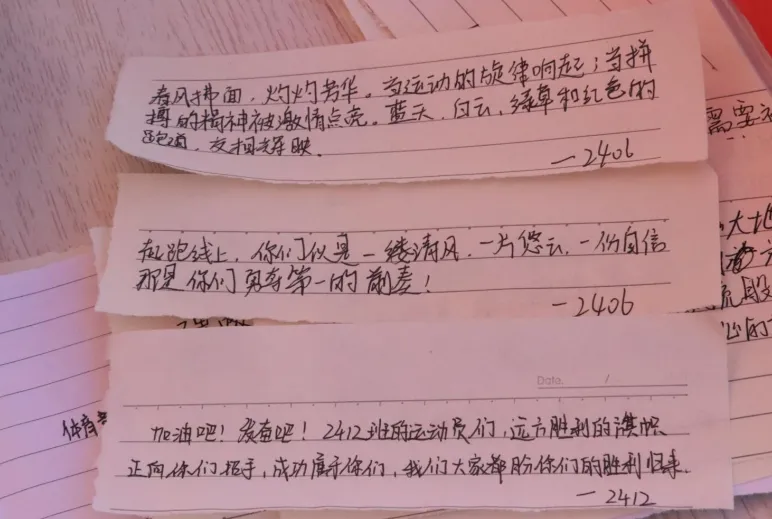 春风拂面，灼灼芳华。当运动的旋律响起；当拼
搏的精神被激情点亮。蓝天、白云、绿草和红色的
跑道，交相辉映。
—2406
起跑线上，你们似是一缕清风，一片悠云，一份自信
那是你们勇夺第一的前奏！
—2406
Date. /
加油吧！发奋吧！2412班的运动员们，远方胜利的旗帜
正向你们招手，成功属于你们，我们大家都盼你们的胜利归来.
—2412
需要
大地
体育